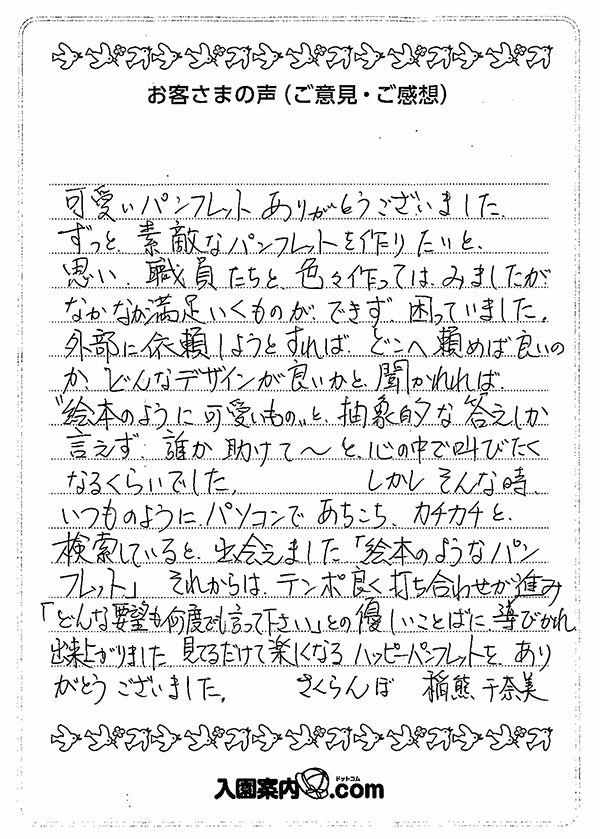 お客さまの声（ご意見・ご感想）
可愛いパンフレット ありがとうございました。
ずっと、素敵なパンフレットを作りたいと、
思い、職員たちと、色々作っては、みましたが
なかなか満足いくものが、できず、困っていました。
外部に依頼しようとすれば、どこへ頼めば良いの
か、どんなデザインが良いかと、聞かれれば、
〝絵本のように可愛いもの〟と、抽象的な答えしか
言えず、誰か助けて〜と、心の中で叫びたく
なるくらいでした。 しかし そんな時、
いつものように、パソコンで あちこち、カチカチと、
検索していると、出会えました「絵本のようなパン
フレット」 それからは、テンポ良く打ち合わせが進み
「どんな要望も何度でも言って下さい」との優しいことばに、導びかれ
出来上がりました 見てるだけで楽しくなる ハッピーパンフレットを、あり
がとうございました。 さくらんぼ 稲熊 千奈美
入園案内 ドットコム .com